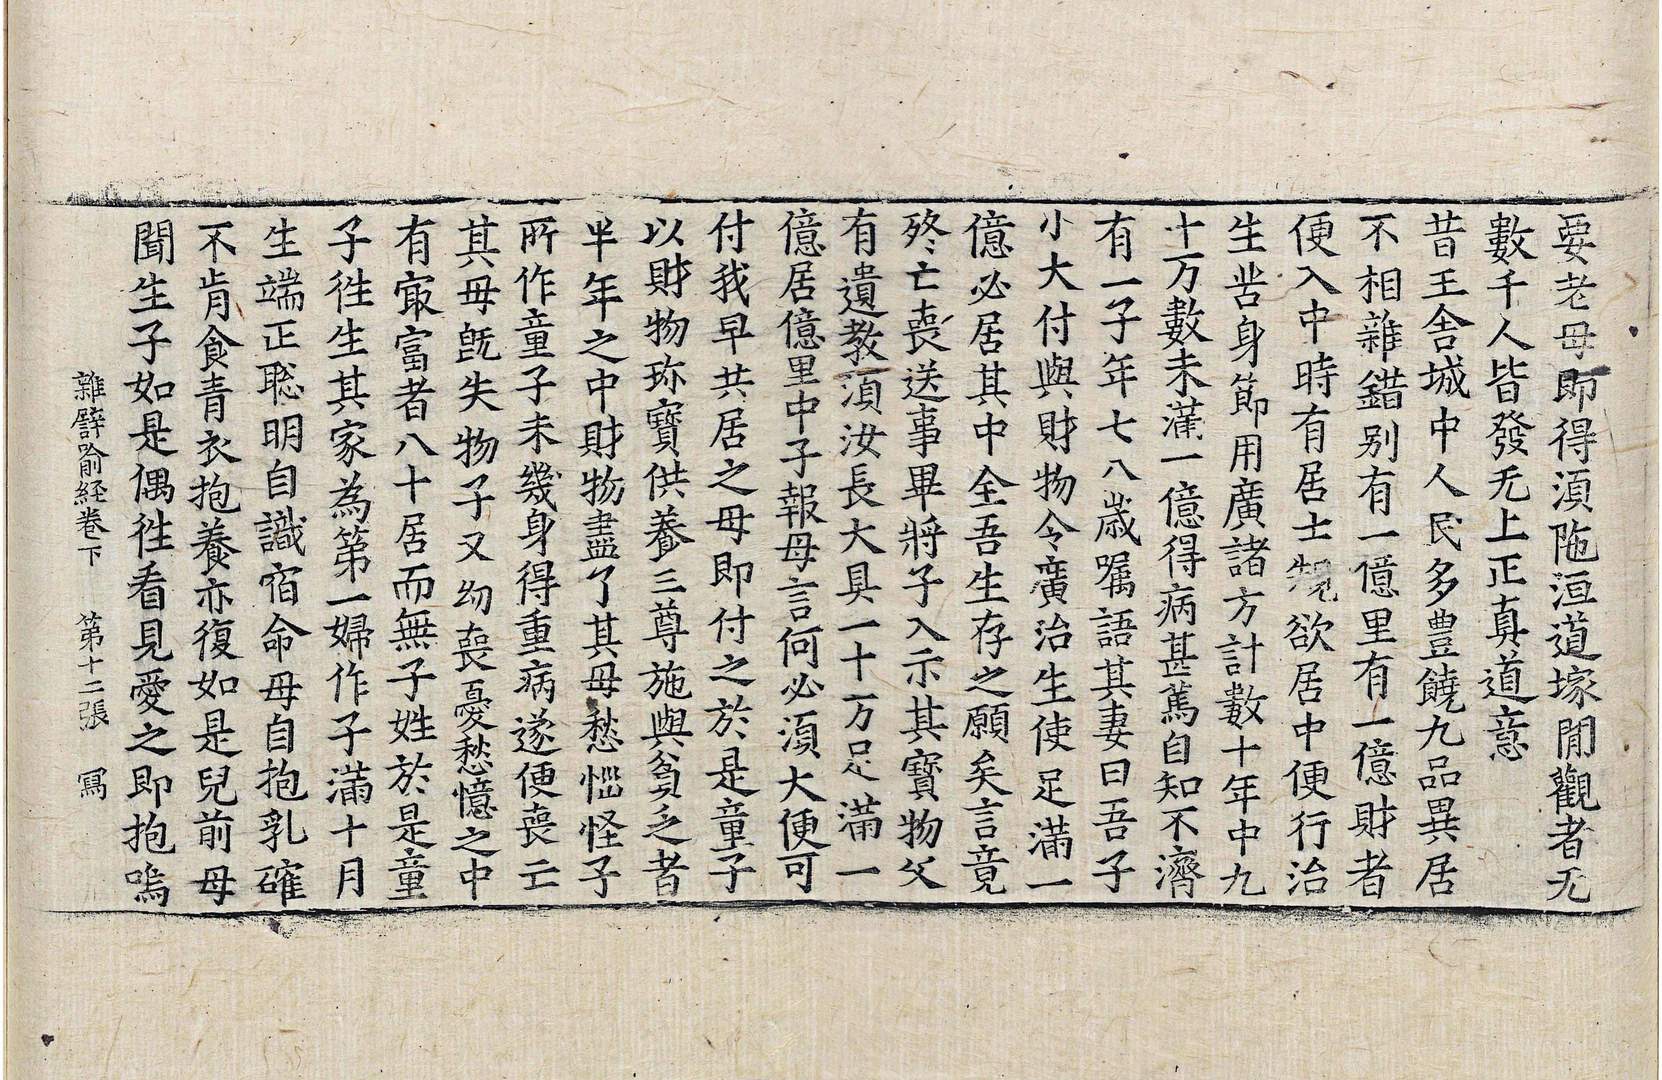 要老母即得湏陁洹道塚閒觀者无
數千人皆發无上正真道意
昔王舍城中人民多豊饒九品異居
不相雜錯别有一億里有一億財者
便入中時有居士䂓欲居中便行治
生苦身節用廣諸方計數十年中九
十万數未滿一億得病甚篤自知不濟
有一子年七八歲囑語其妻曰吾子
小大付與財物令廣治生使足滿一
億必居其中全吾生存之願矣言竟
終亡喪送事畢將子入示其寶物父
有遺教湏汝長大具一十万足滿一
億居億里中子報母言何必湏大便可
付我早共居之母即付之於是童子
以財物珎寶供養三尊施與貧乏者
半年之中財物盡了其母愁惱怪子
所作童子未幾身得重病遂便喪亡
其母旣失物子又幼喪憂愁憶之中
有㝡富者八十居而無子姓於是童
子徃生其家為第一婦作子滿十月
生端正聡明自識宿命母自抱乳確
不肯食青衣抱養亦復如是兒前母
聞生子如是偶徃看見愛之即抱嗚
雜譬喻経卷下 第十二張 寫